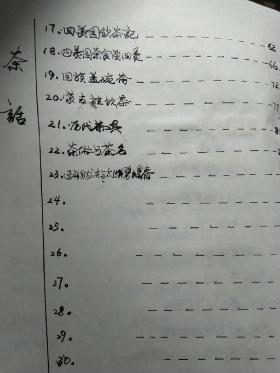 茶話
17. 四美园饮茶记 62
18. 四美园茶食溢回美 66
19. 回族盖碗茶 72
20. 蒙古族饮茶
21. 历代茶具
22. 茶俗与茶名
23.
24.
25.
26.
27.
28.
29.
30.